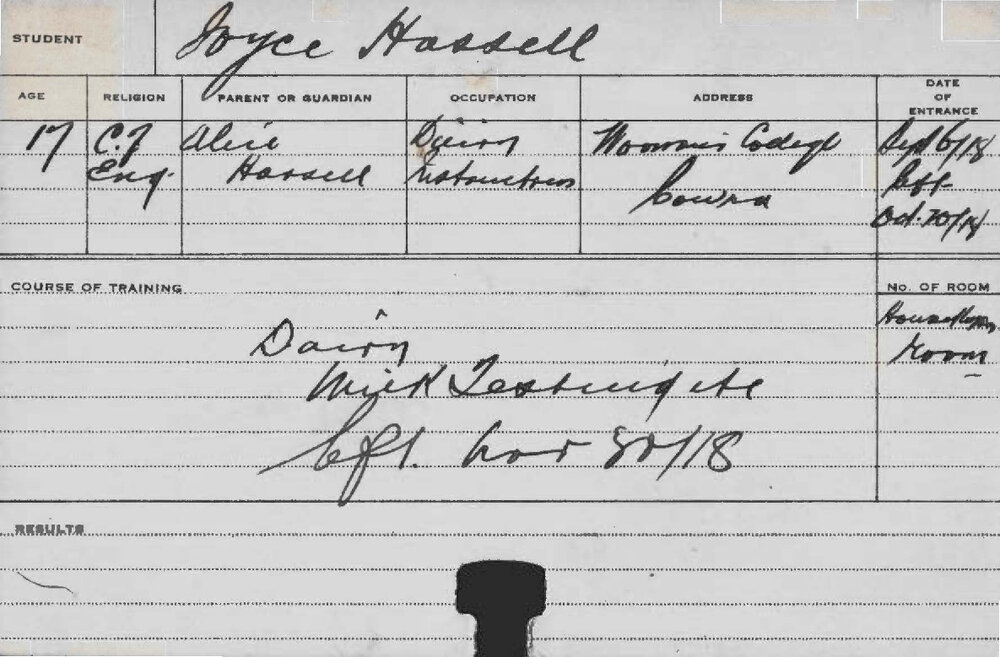 STUDENT Joyce Hassell
AGE RELIGION PARENT OR GUARDIAN OCCUPATION ADDRESS DATE OF ENTRANCE
17 C. of Alice Dairy Sept 6/18
Eng. Hassell Instructress Cowra Left
Oct. 20/18
COURSE OF TRAINING No. OF ROOM
Dairy
Milk Testing etc room
Left. Nov 30/18
RESULTS